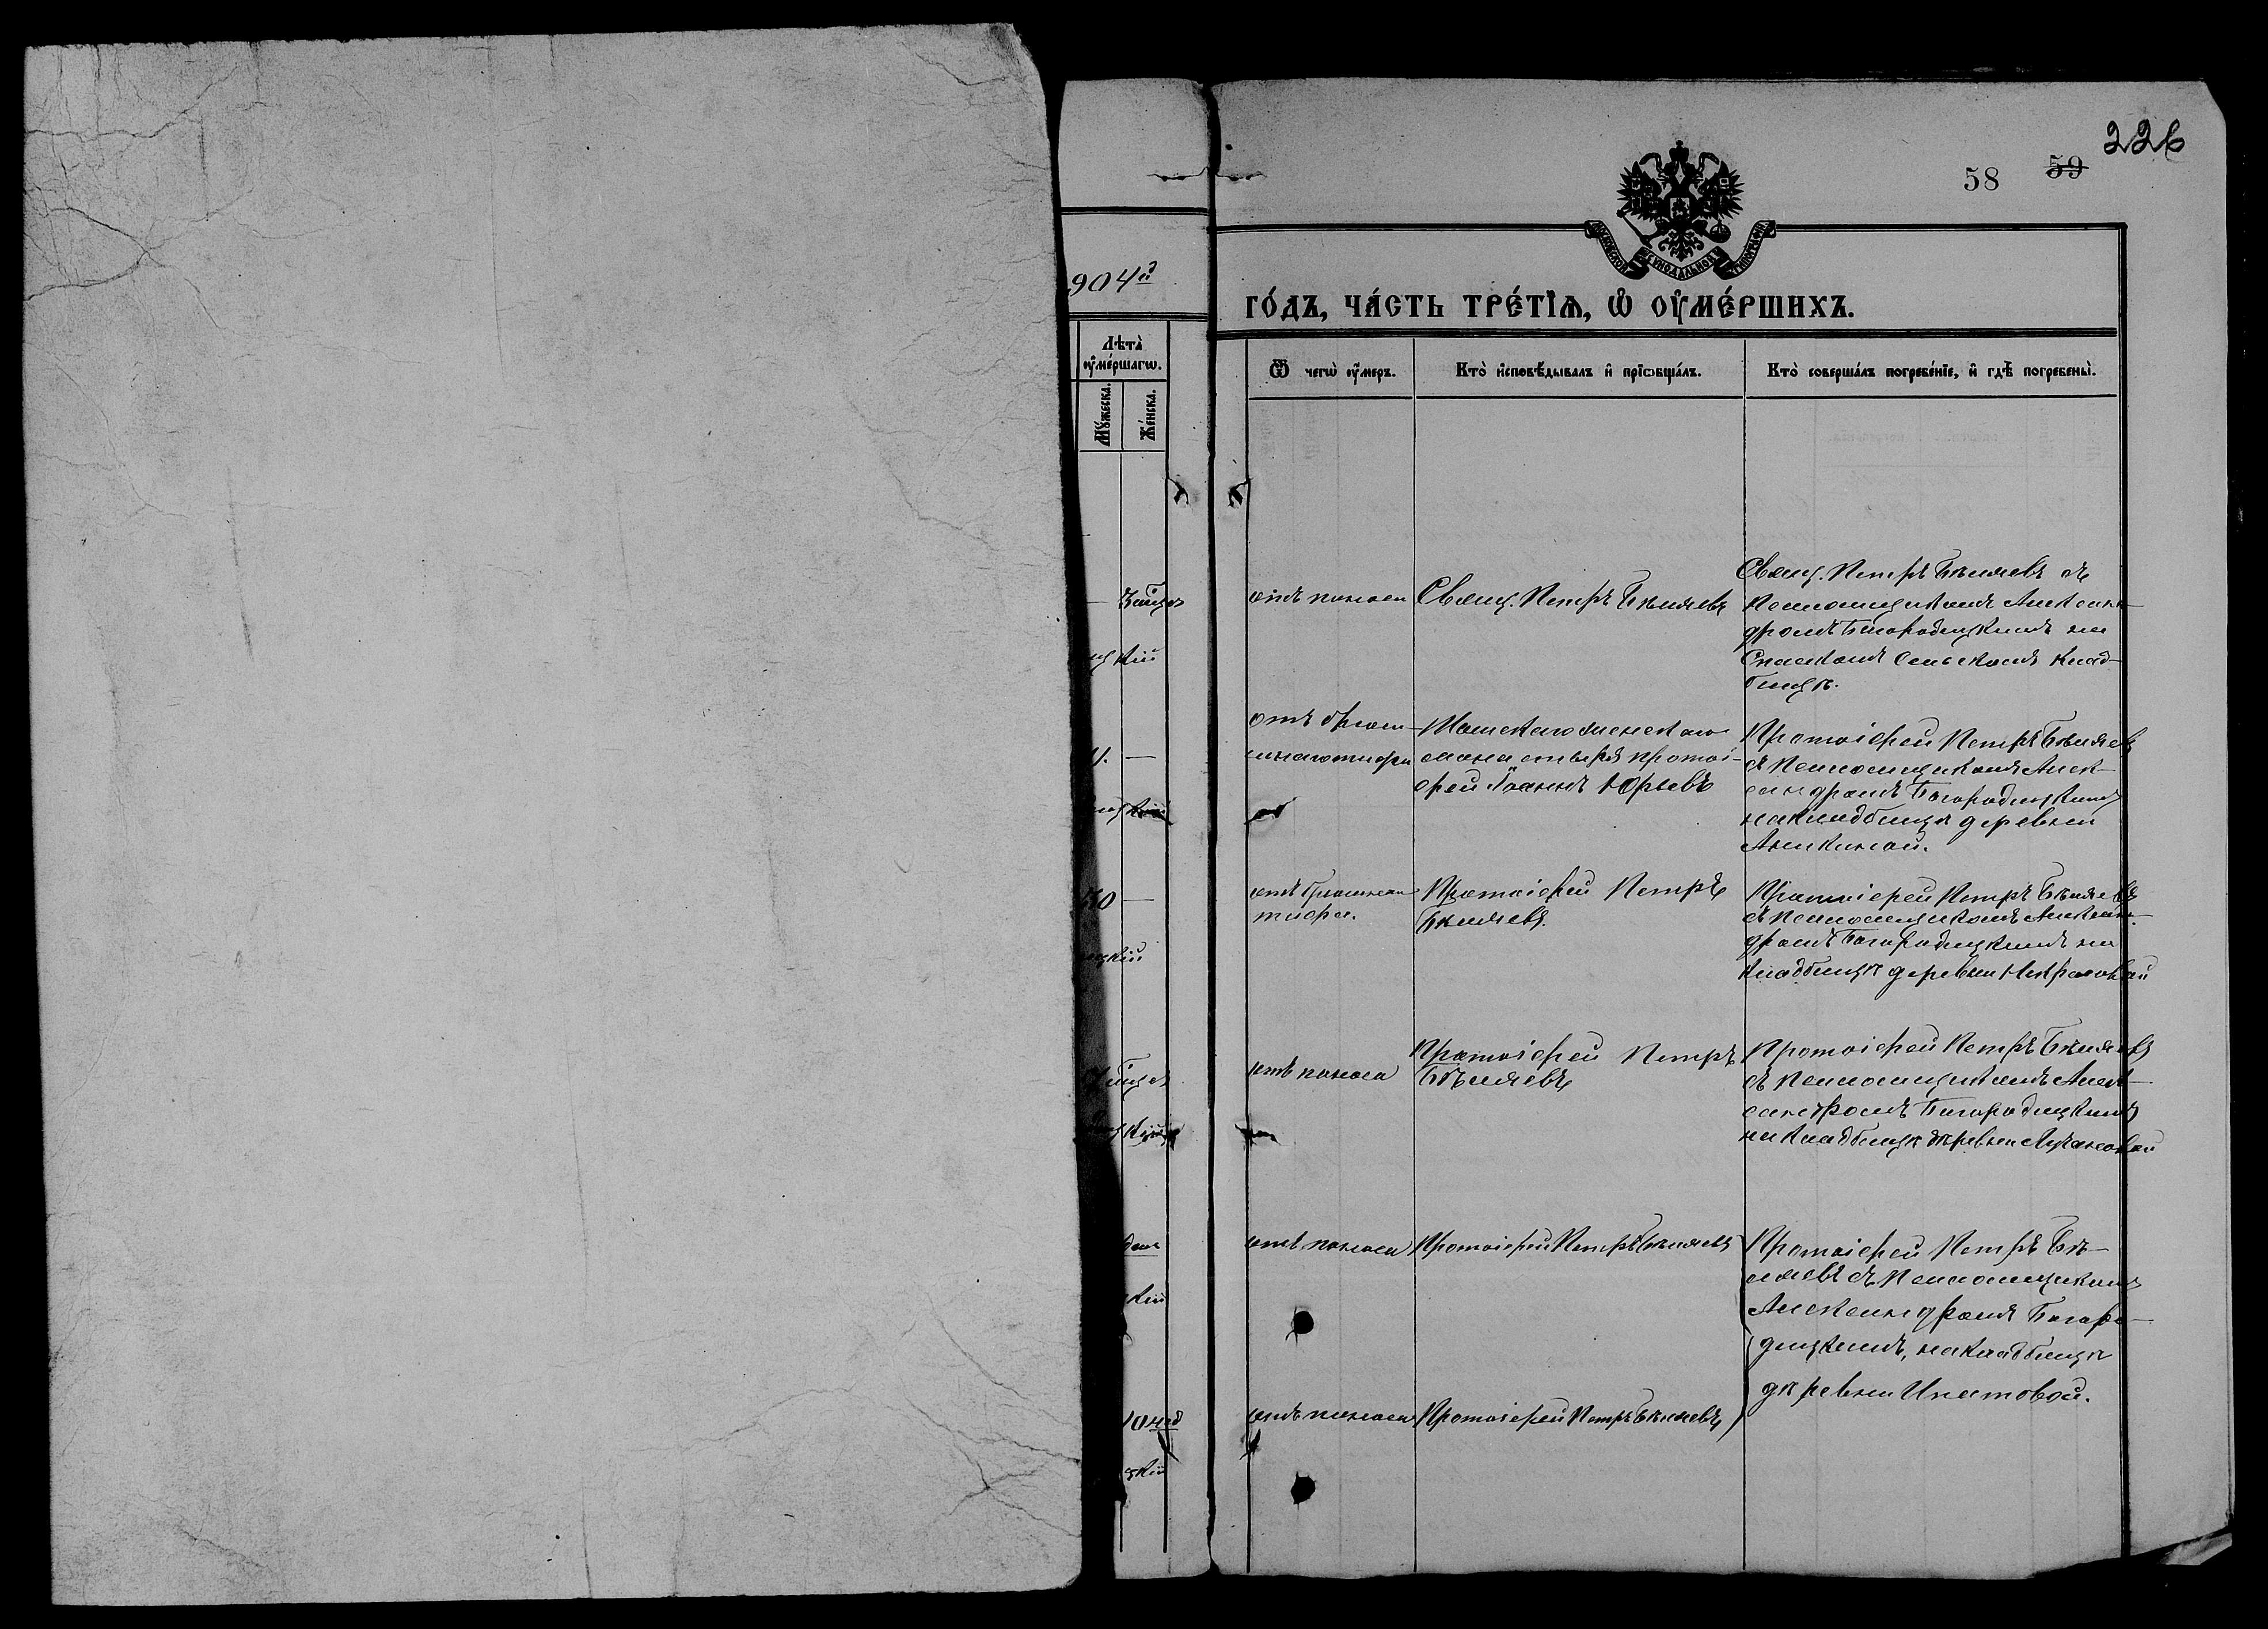 226
58 59
МОСКОВСКОЙ СѴНОДАЛЬНОЙ ТИПОГРАФІИ
904й
ГО́ДЪ, ЧА́СТЬ ТРЕ́ТІѦ, Ѡ҆ ОУ҆МЕ́РШИХЪ.
Лѣта̀
оу҆ме́ршагѡ.
Му́жеска.
Же́нска.
Ѿ чегѡ̀ оу҆́меръ.
Кто̀ и҆сповѣ́дывалъ и҆ прїѻбща́лъ.
Кто̀ соверша́лъ погребе́нїе, и҆ гдѣ̀ погребены̀.
—
кій
отъ поноса
Свящ. Петръ Бѣляевъ
Свящ. Петръ Бѣляевъ съ
Псаломщикомъ Алексан-
дромъ Богородицкимъ на
Спасскомъ сельскомъ клад-
бищѣ.
—
отъ брюш-
наготифа
женскаго
монастыря протоі-
ерей Іоаннъ Юрьевъ
Протоіерей Петръ Бѣляевъ
съ Псаломщикомъ Алек-
сандромъ Богородицкимъ
накладбищѣ деревни
Аникиной.
30 —
цкій
отъ брюшнаго
тифа.
Протоіерей Петръ
Бѣляевъ.
Протоіерей Петръ Бѣляевъ
съ Псаломщикомъ Алексан-
дромъ Богородицкимъ на
кладбищѣ деревни Некрасовой
кій
отъ поноса
Протоіерей Петръ
Бѣляевъ
Протоіерей Петръ Бѣляевъ
съ Псаломщикомъ Алек-
сандромъ Богородицкимъ
на кладбищѣ деревни
кій
отъ поноса
Протоіерей Петръ Бѣляевъ
Протоіерей Петръ Бѣ-
ляевъ съ Псаломщикомъ
Александромъ Богоро-
дицкимъ, накладбищѣ
деревни Ипатовой.
10 нед
цкій
отъ поноса
Протоіерей Петръ Бѣляевъ